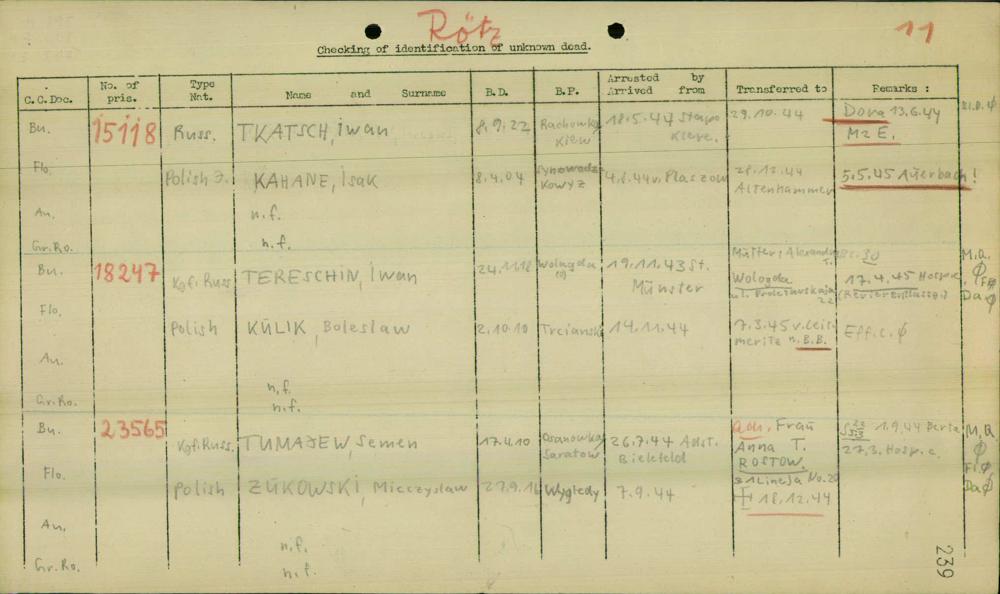 Rötz
11
Checking of identification of unknown dead.
C.C.Doc. No. of pris. Type Nat. Name and Surname B.D. B.P. Arrested by Arrived from Transferred to Remarks :
Bu. 15118 Russ. TKATSCH, Iwan 8.9.22 Rachowka Kiew 18.5.44 Stapo Kiew. 29.10.44 Dora 13.6.44
M2 E.
Flo. Polish J. KAHANE, Isak 8.4.04 4.8.44 v. Plaszow 28.12.44 Altenhammer 5.5.45 Auerbach!
Au. n.f.
Gr.Ro. n.f.
Bu. 18247 Kgf. Russ. TERESCHIN, Iwan 24.11.18 Wologda 19.11.43 St. Münster Mutter, Alexandra T.
Wologda 17.4.45 Hosp.
M.Q. Ø
Fl Ø
Da Ø
Flo. Polish KULIK, Boleslaw 2.10.10 Trcianski 14.11.44 7.3.45 v. Leitmeritz n. B.B. Eff.c. Ø
Au. n.f.
Gr.Ro. n.f.
Bu. 23565 Kgf. Russ. TUMAJEW, Semen 17.4.10 Osanowka Saratow 26.7.44 Adst. Bielefeld adr. Frau Anna T. ROSTOW. 1.9.44
27.3. Hosp.
M.Q. Ø
Fl Ø
Da Ø
31 Lineja No. 20
Flo. Polish ZUKOWSKI, Mieczyslaw 27.9.16 Wyględy 7.9.44 18.12.44
Au. n.f.
Gr.Ro. n.f.
239